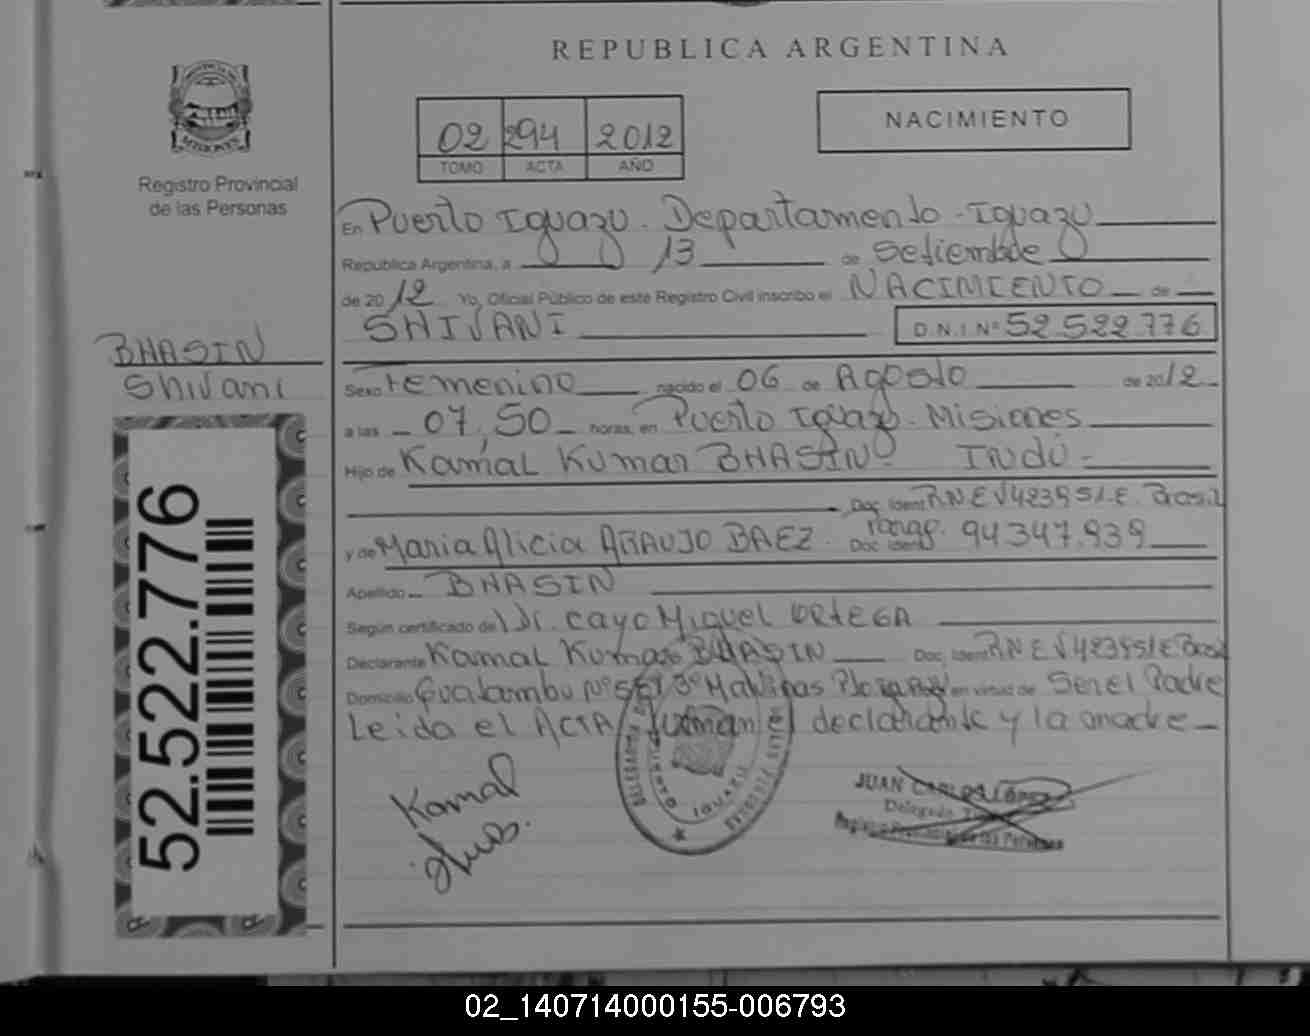 REPUBLICA ARGENTINA
NACIMIENTO
02 294 2012
TOMO ACTA AÑO
Registro Provincial
de las Personas
En Puerto Iguazu. Departamento - Iguazu
Republica Argentina, a 13 de Setiembre
de 2012 Yo, Oficial Público de este Registro Civil inscribo el NACIMIENTO de
SHIVANI D.N.I Nº 52 522 776
BHASIN
Shivani
Sexo Femenino nacido el 06 de Agosto de 2012
a las 07,50 horas, en Puerto Iguazu. Misiones
Hijo de Kamal Kumar BHASIN. Indú -
Doc. Ident RNE V423951-E. Brasil
y de Maria Alicia ARAUJO BAEZ. Parag. Doc Ident 94347.939
Apellido BHASIN
Según certificado de Dr. Cayo Miguel ORTEGA
Declarante Kamal Kumar BHASIN Doc. Ident RNE V423951E Brasil
Domicilio Guatambu Nº 551 Bº Malvinas en virtud de Ser el Padre
Leida el ACTA, firman el declarante y la madre
Kamal
DELEGACIÓN
IGUAZU
JUAN CARLOS LÓPEZ
Delegado
Registro Provincial de las Personas
52.522.776
02_140714000155-006793